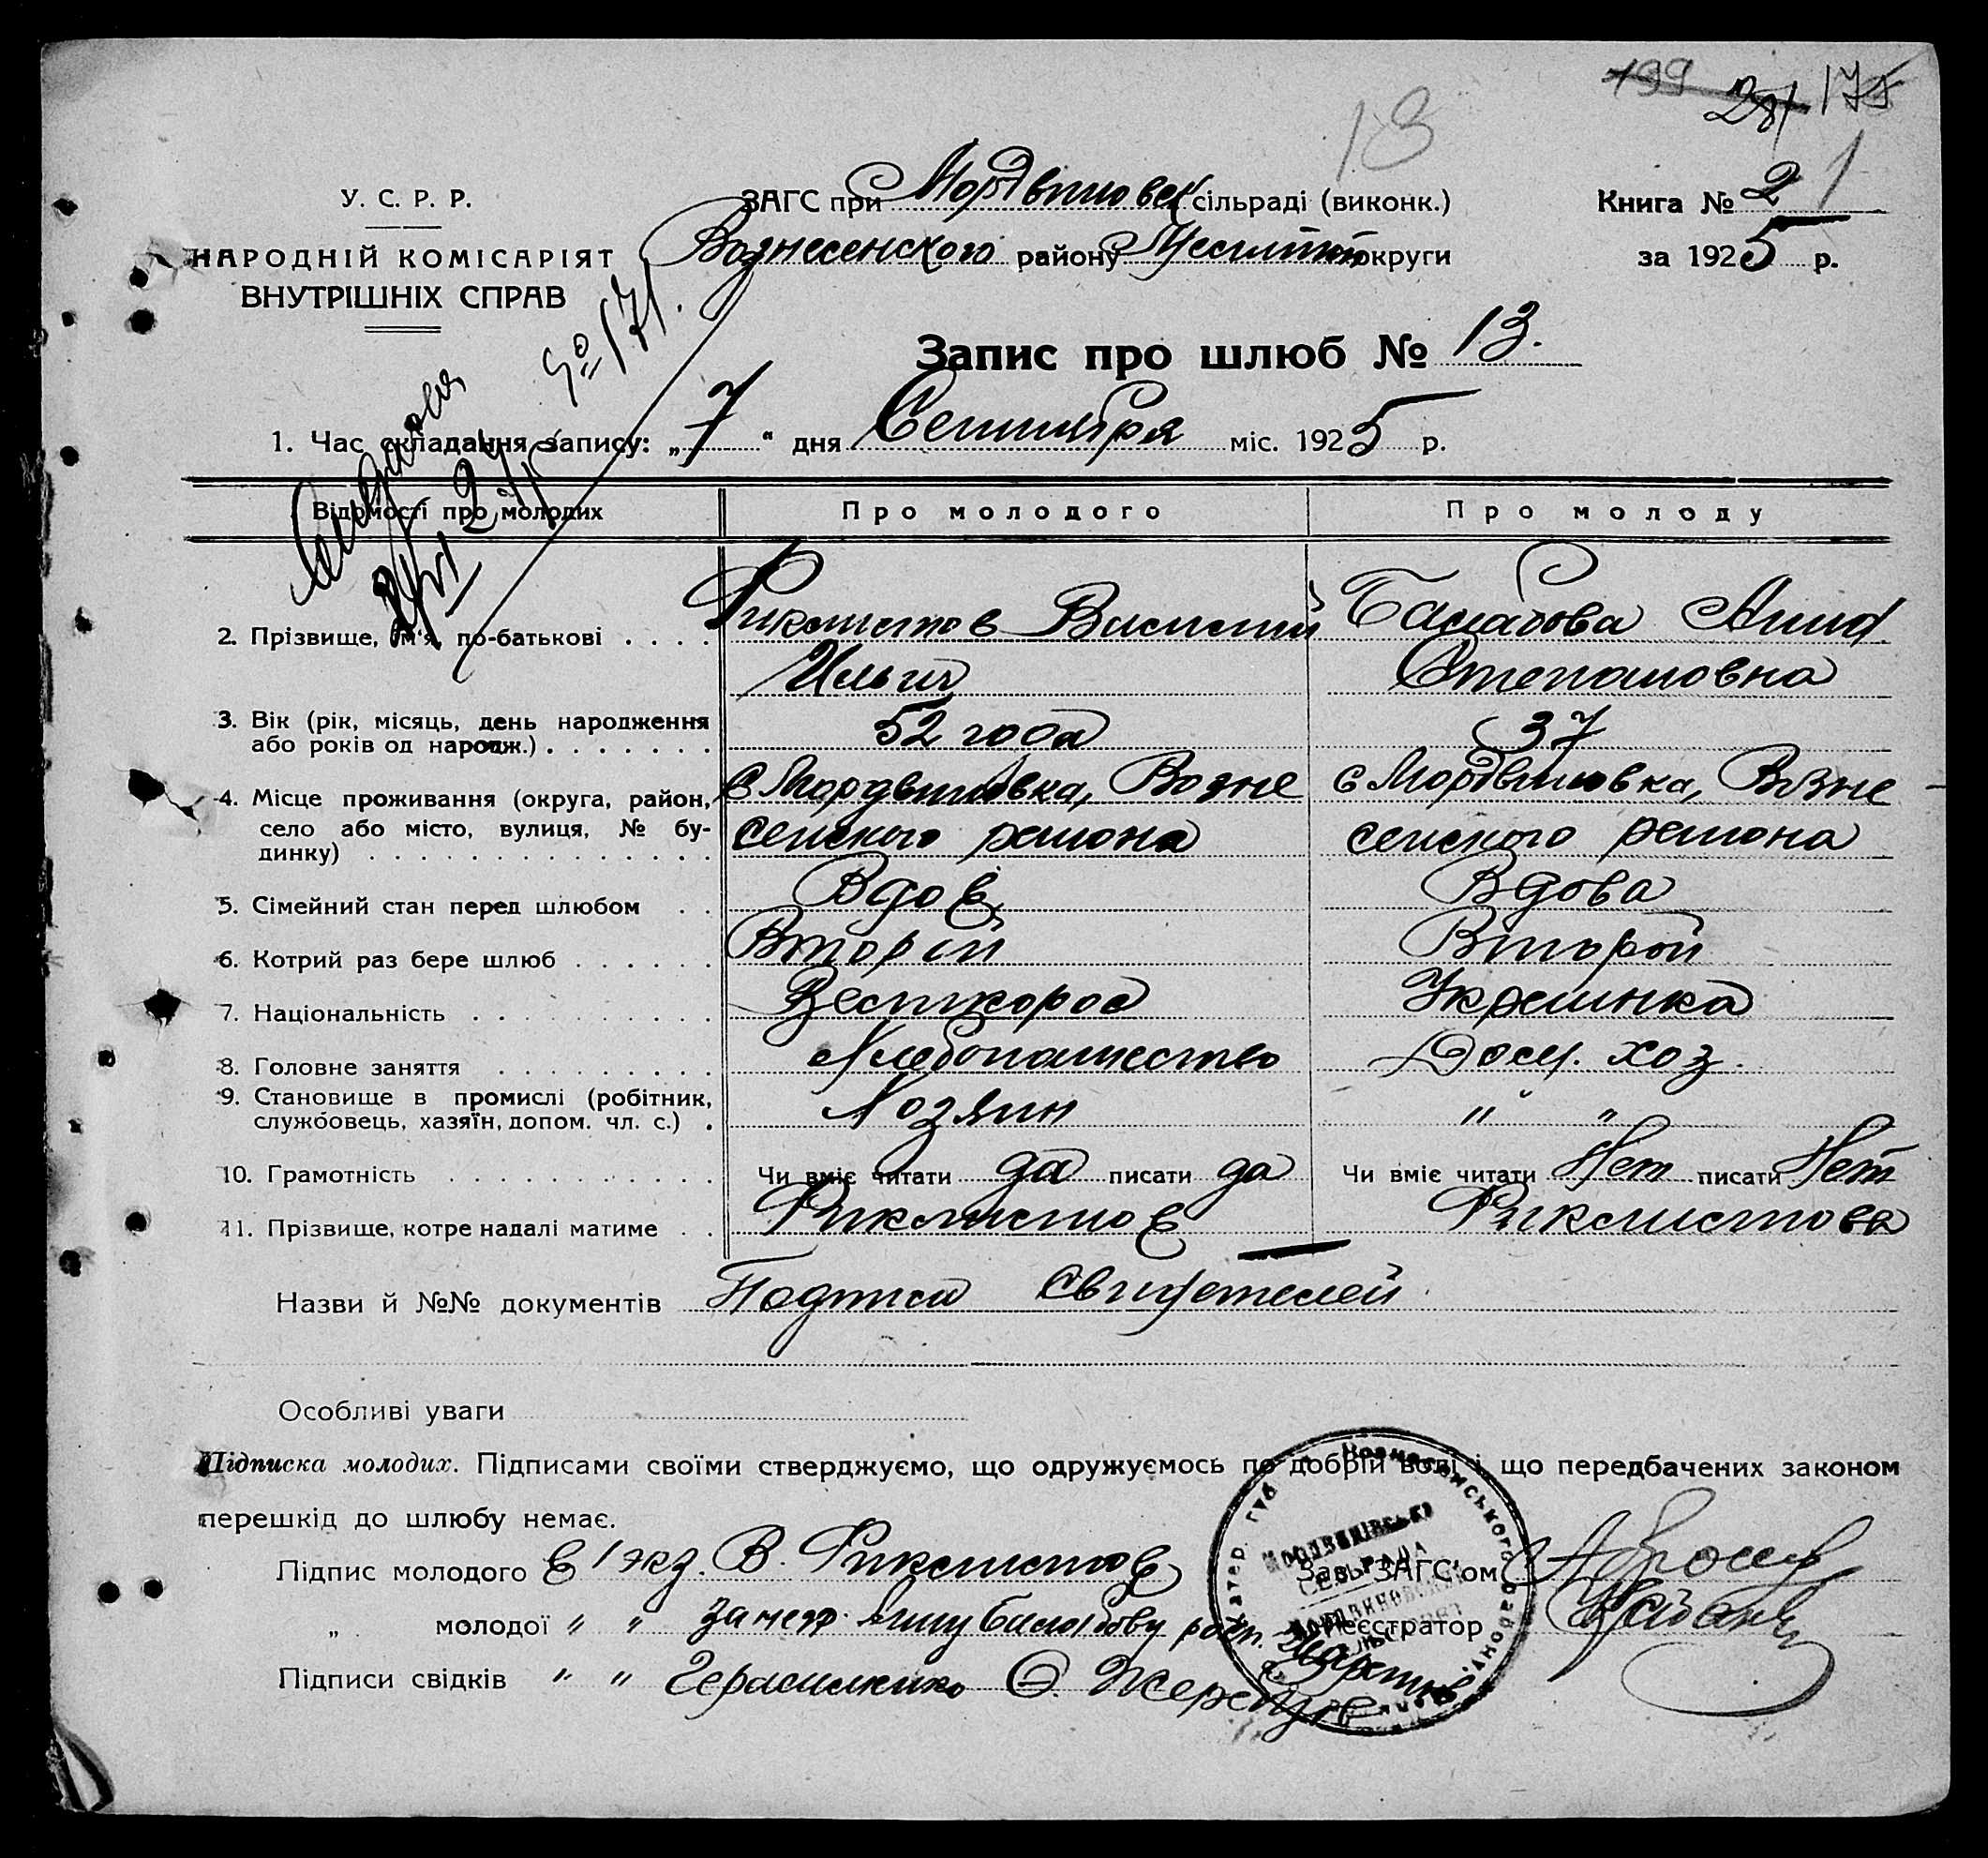 199 281 175
18
У. С. Р. Р.
ЗАГС при Мордвиновск сільраді (виконк.)
Книга № 2 1
НАРОДНІЙ КОМІСАРІЯТ
ВНУТРІШНІХ СПРАВ
Вознесенского району округи
за 1925 р.
№ 171.
Запис про шлюб № 13.
1. Час складання запису: „7“ дня Сентября міс. 1925 р.
Відомості про молодих Про молодого Про молоду
2. Прізвище, ім'я, по-батькові . . . . Василий Анна
Ильич Степановна
3. Вік (рік, місяць, день народження
або років од народж.) . . . . . . . 52 года 37
4. Місце проживання (округа, район, с Мордвиновка, Возне с Мордвиновка, Возне
село або місто, вулиця, № бу- сенского района сенского района
динку) . . . . . . . . . . . . . .
5. Сімейний стан перед шлюбом . . Вдов Вдова
6. Котрий раз бере шлюб . . . . . . Второй Второй
7. Національність . . . . . . . . . . Великорос Украинка
8. Головне заняття . . . . . . . . . Хлебопашество Дом. хоз.
9. Становище в промислі (робітник,
службовець, хазяїн, допом. чл. с.) . Хозяин " "
10. Грамотність . . . . . . . . . . . Чи вміє читати да писати да Чи вміє читати Нет писати Нет
11. Прізвище, котре надалі матиме . . Фиклистов Фиклистова
Назви й №№ документів Подписа Свидетелей
Особливі уваги
Підписка молодих. Підписами своїми стверджуємо, що одружуємось по добрій волі і що передбачених законом
перешкід до шлюбу немає.
Підпис молодого В 1 экз. В. Фиклистов Зав. ЗАГС'ом
„ молодої " " за негр. Анну расп. Реєстратор
Підписи свідків " " Герасименко